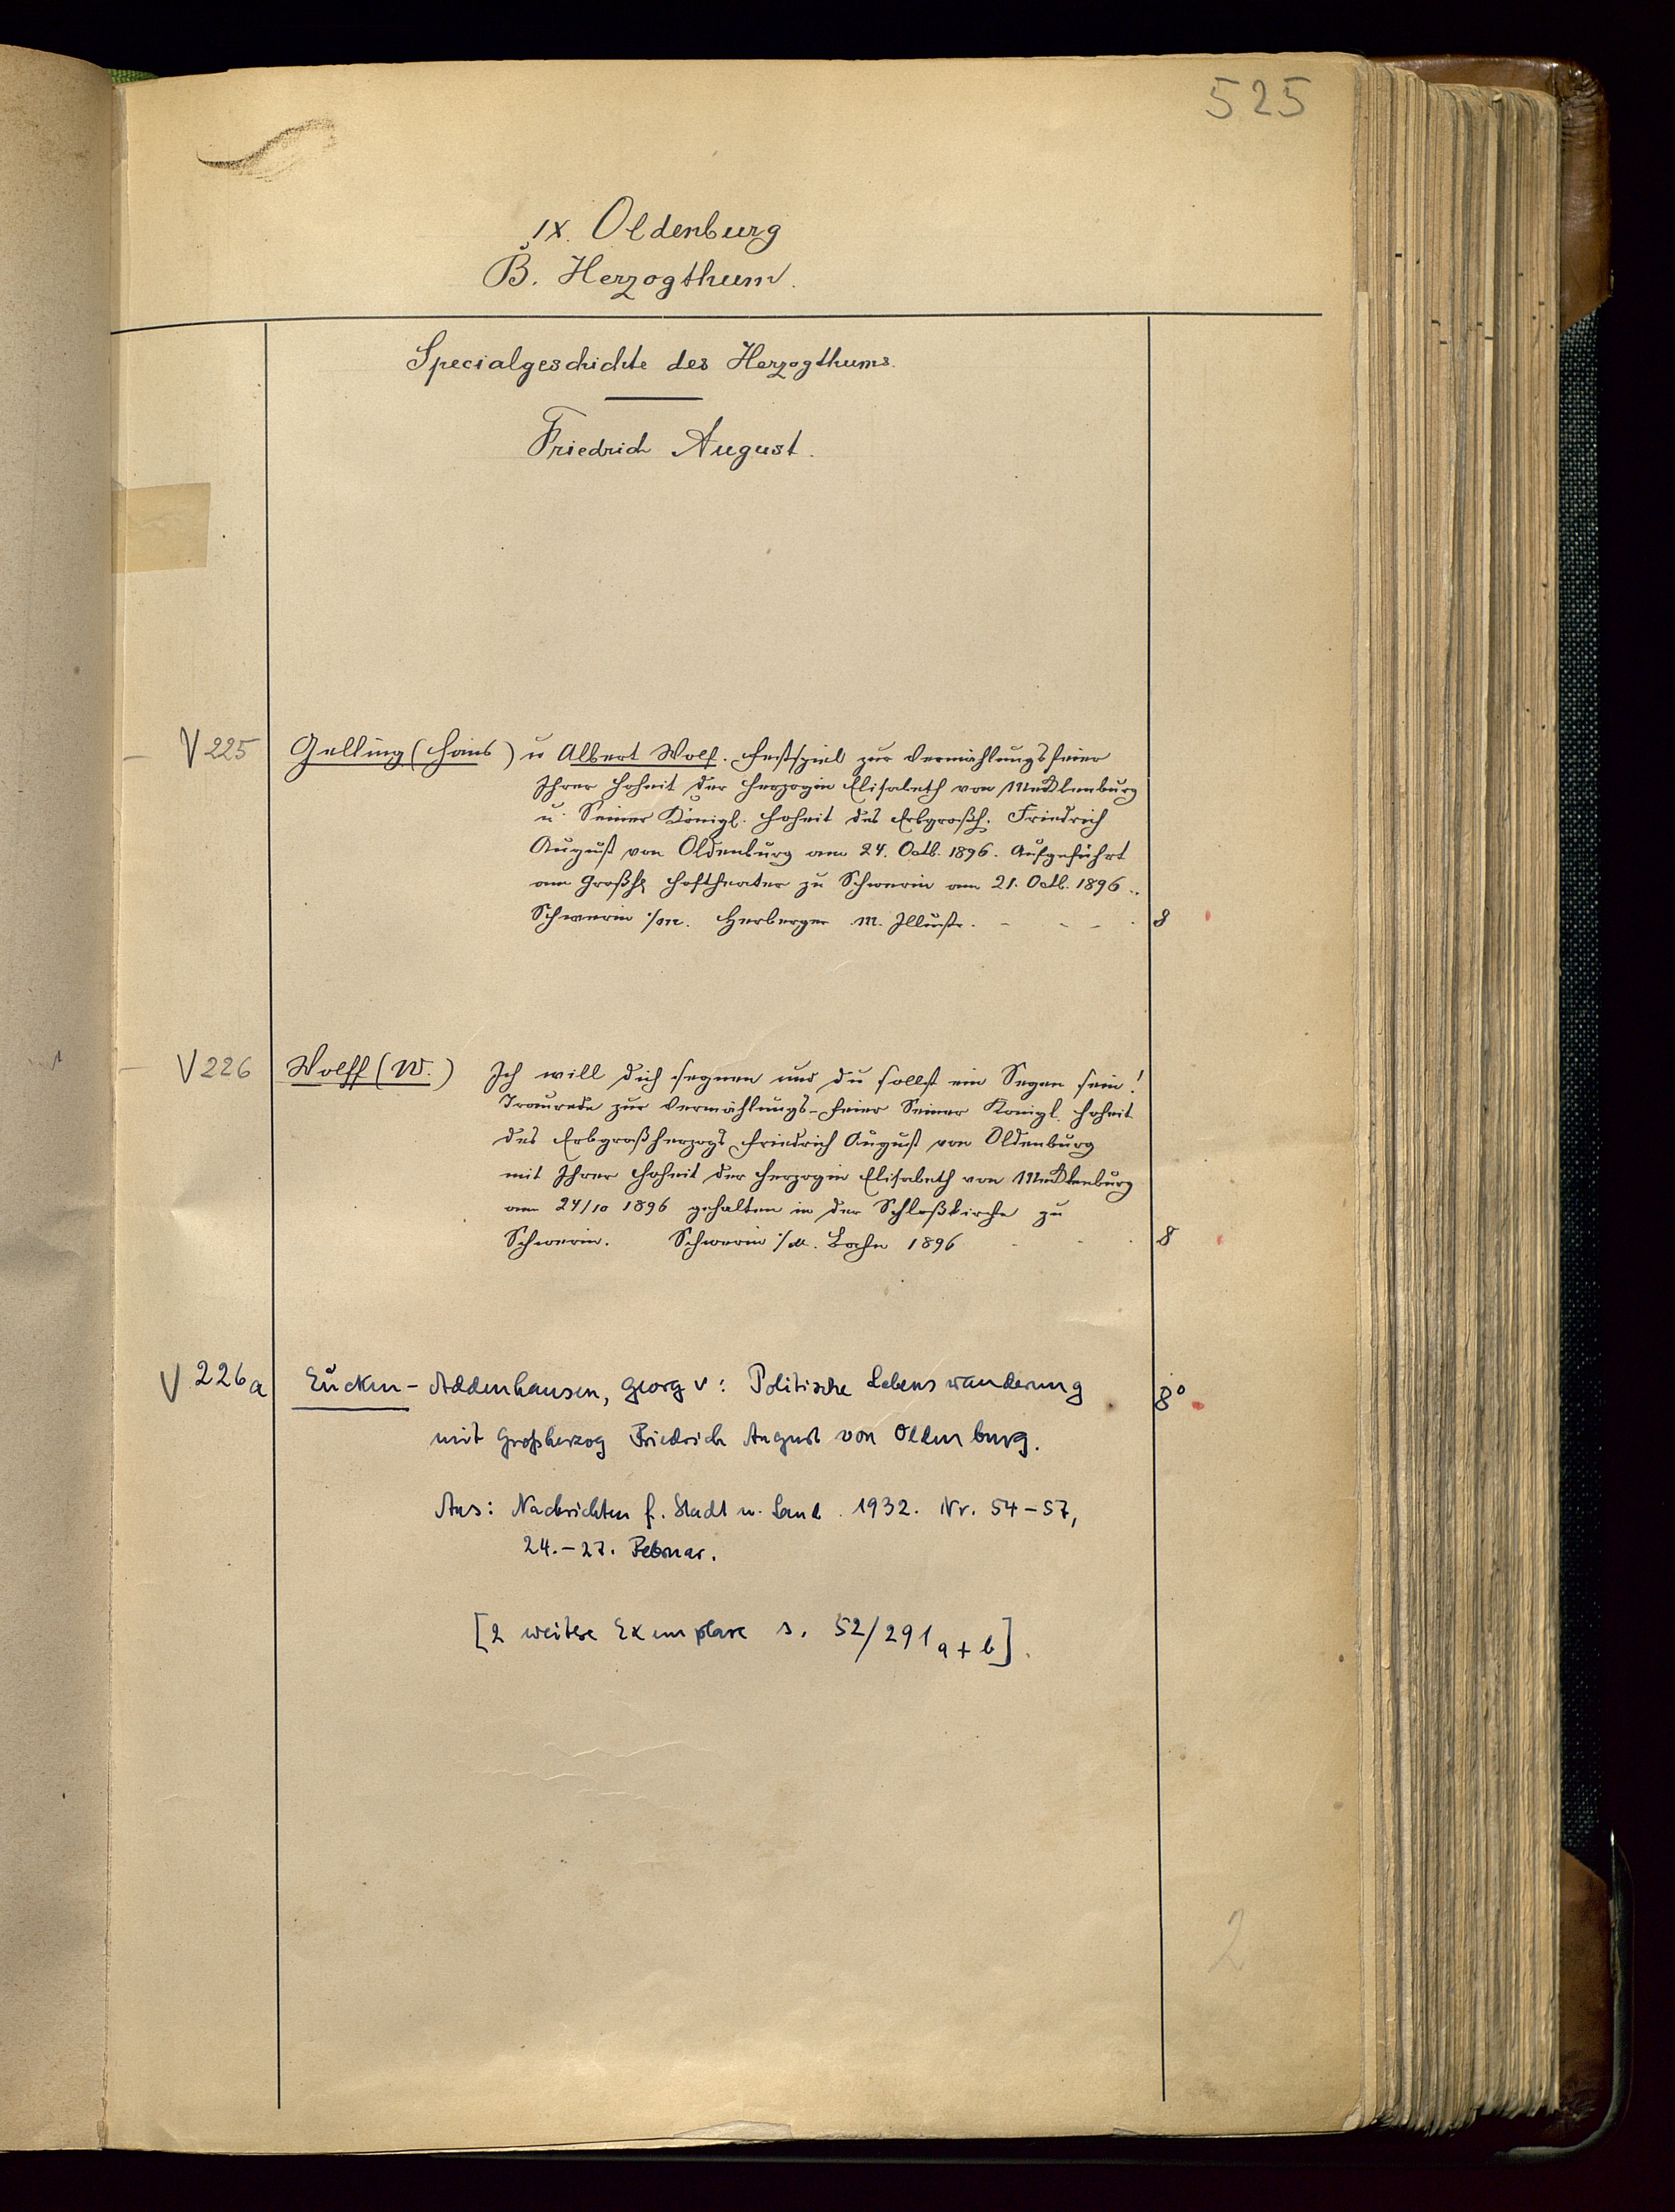 525
IX. Oldenburg
B. Herzogthum.
Specialgeschichte des Herzogthums.
Friedrich August.
V 225 Gelling (Hans) u Albert Wolf. Festspiel zur Vermählungsfeier
Ihrer Hoheit der Herzogin Elisabeth von Mecklenburg
u. Seiner Königl. Hoheit des Erbgroßh. Friedrich
August von Oldenburg am 24. Octb. 1896. Aufgeführt
am Großh. Hoftheater zu Schwerin am 21. Octb. 1896.
Schwerin i/m. Herberger m. Illustr. - - - 8
V 226 Wolff (W.) Ich will dich segnen und du sollst ein Segen sein!
Traurede zur Vermählungs-Feier Seiner Königl. Hoheit
des Erbgroßherzogs Friedrich August von Oldenburg
mit Ihrer Hoheit der Herzogin Elisabeth von Mecklenburg
am 24/10 1896 gehalten in der Schloßkirche zu
Schwerin. Schwerin i/M. 1896 8
V 226a Eucken-Addenhausen, Georg v: Politische Lebenswanderung 8°
mit Großherzog Friedrich August von Oldenburg.
Aus: Nachrichten f. Stadt u. Land. 1932. Nr. 54-57,
24.-27. Februar.
[2 weitere Exemplare s. 52/291 a + b].
2